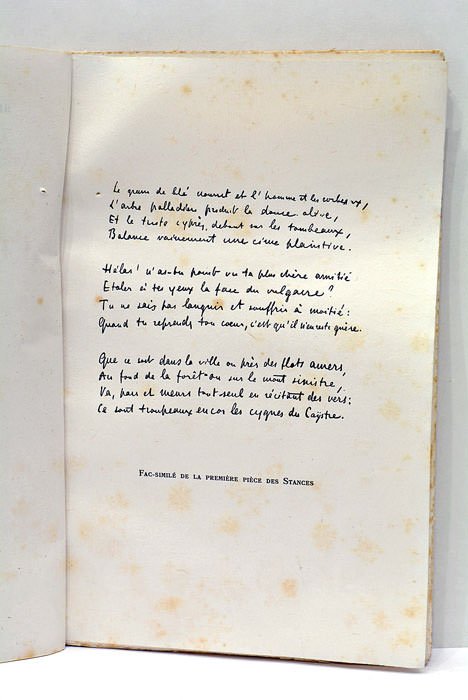 Le grain de blé nourrit et l'homme et les corbeaux,
L'arbre palladien produit la douce olive,
Et le triste cyprès, debout sur les tombeaux,
Balance vainement une cime plaintive.
Hélas! n'as-tu point vu ta plus chère amitié
Etaler à tes yeux la face du vulgaire?
Tu ne sais pas languir et souffrir à moitié:
Quand tu reprends ton cœur, c'est qu'il n'en reste guère.
Que ce soit dans la ville ou près des flots amers,
Au fond de la forêt ou sur le mont sinistre,
Va, pars et meurs tout seul en récitant des vers:
Ce sont troupeaux encor les cygnes du Caÿstre.
FAC-SIMILÉ DE LA PREMIÈRE PIÈCE DES STANCES